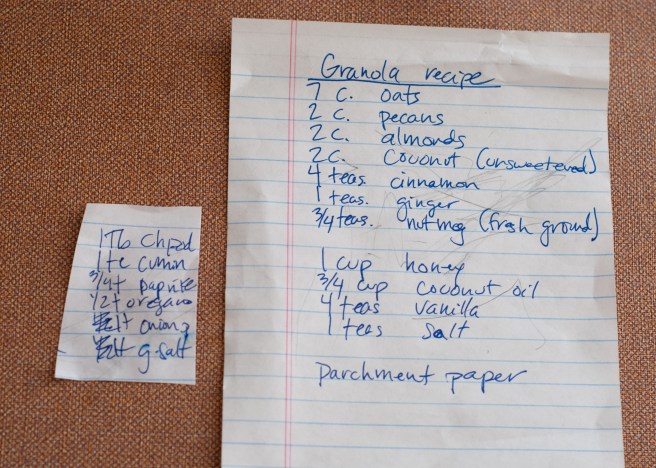 Granola recipe
7 c. oats
2 c. pecans
2 c. almonds
2 c. coconut (unsweetened)
4 teas. cinnamon
1 teas. ginger
3/4 teas. nutmeg (fresh ground)
1 cup honey
3/4 cup coconut oil
4 teas vanilla
1 teas salt
Parchment paper
1 Tb
1 te cumin
3/4t
1/2t oregano
onion
g. salt